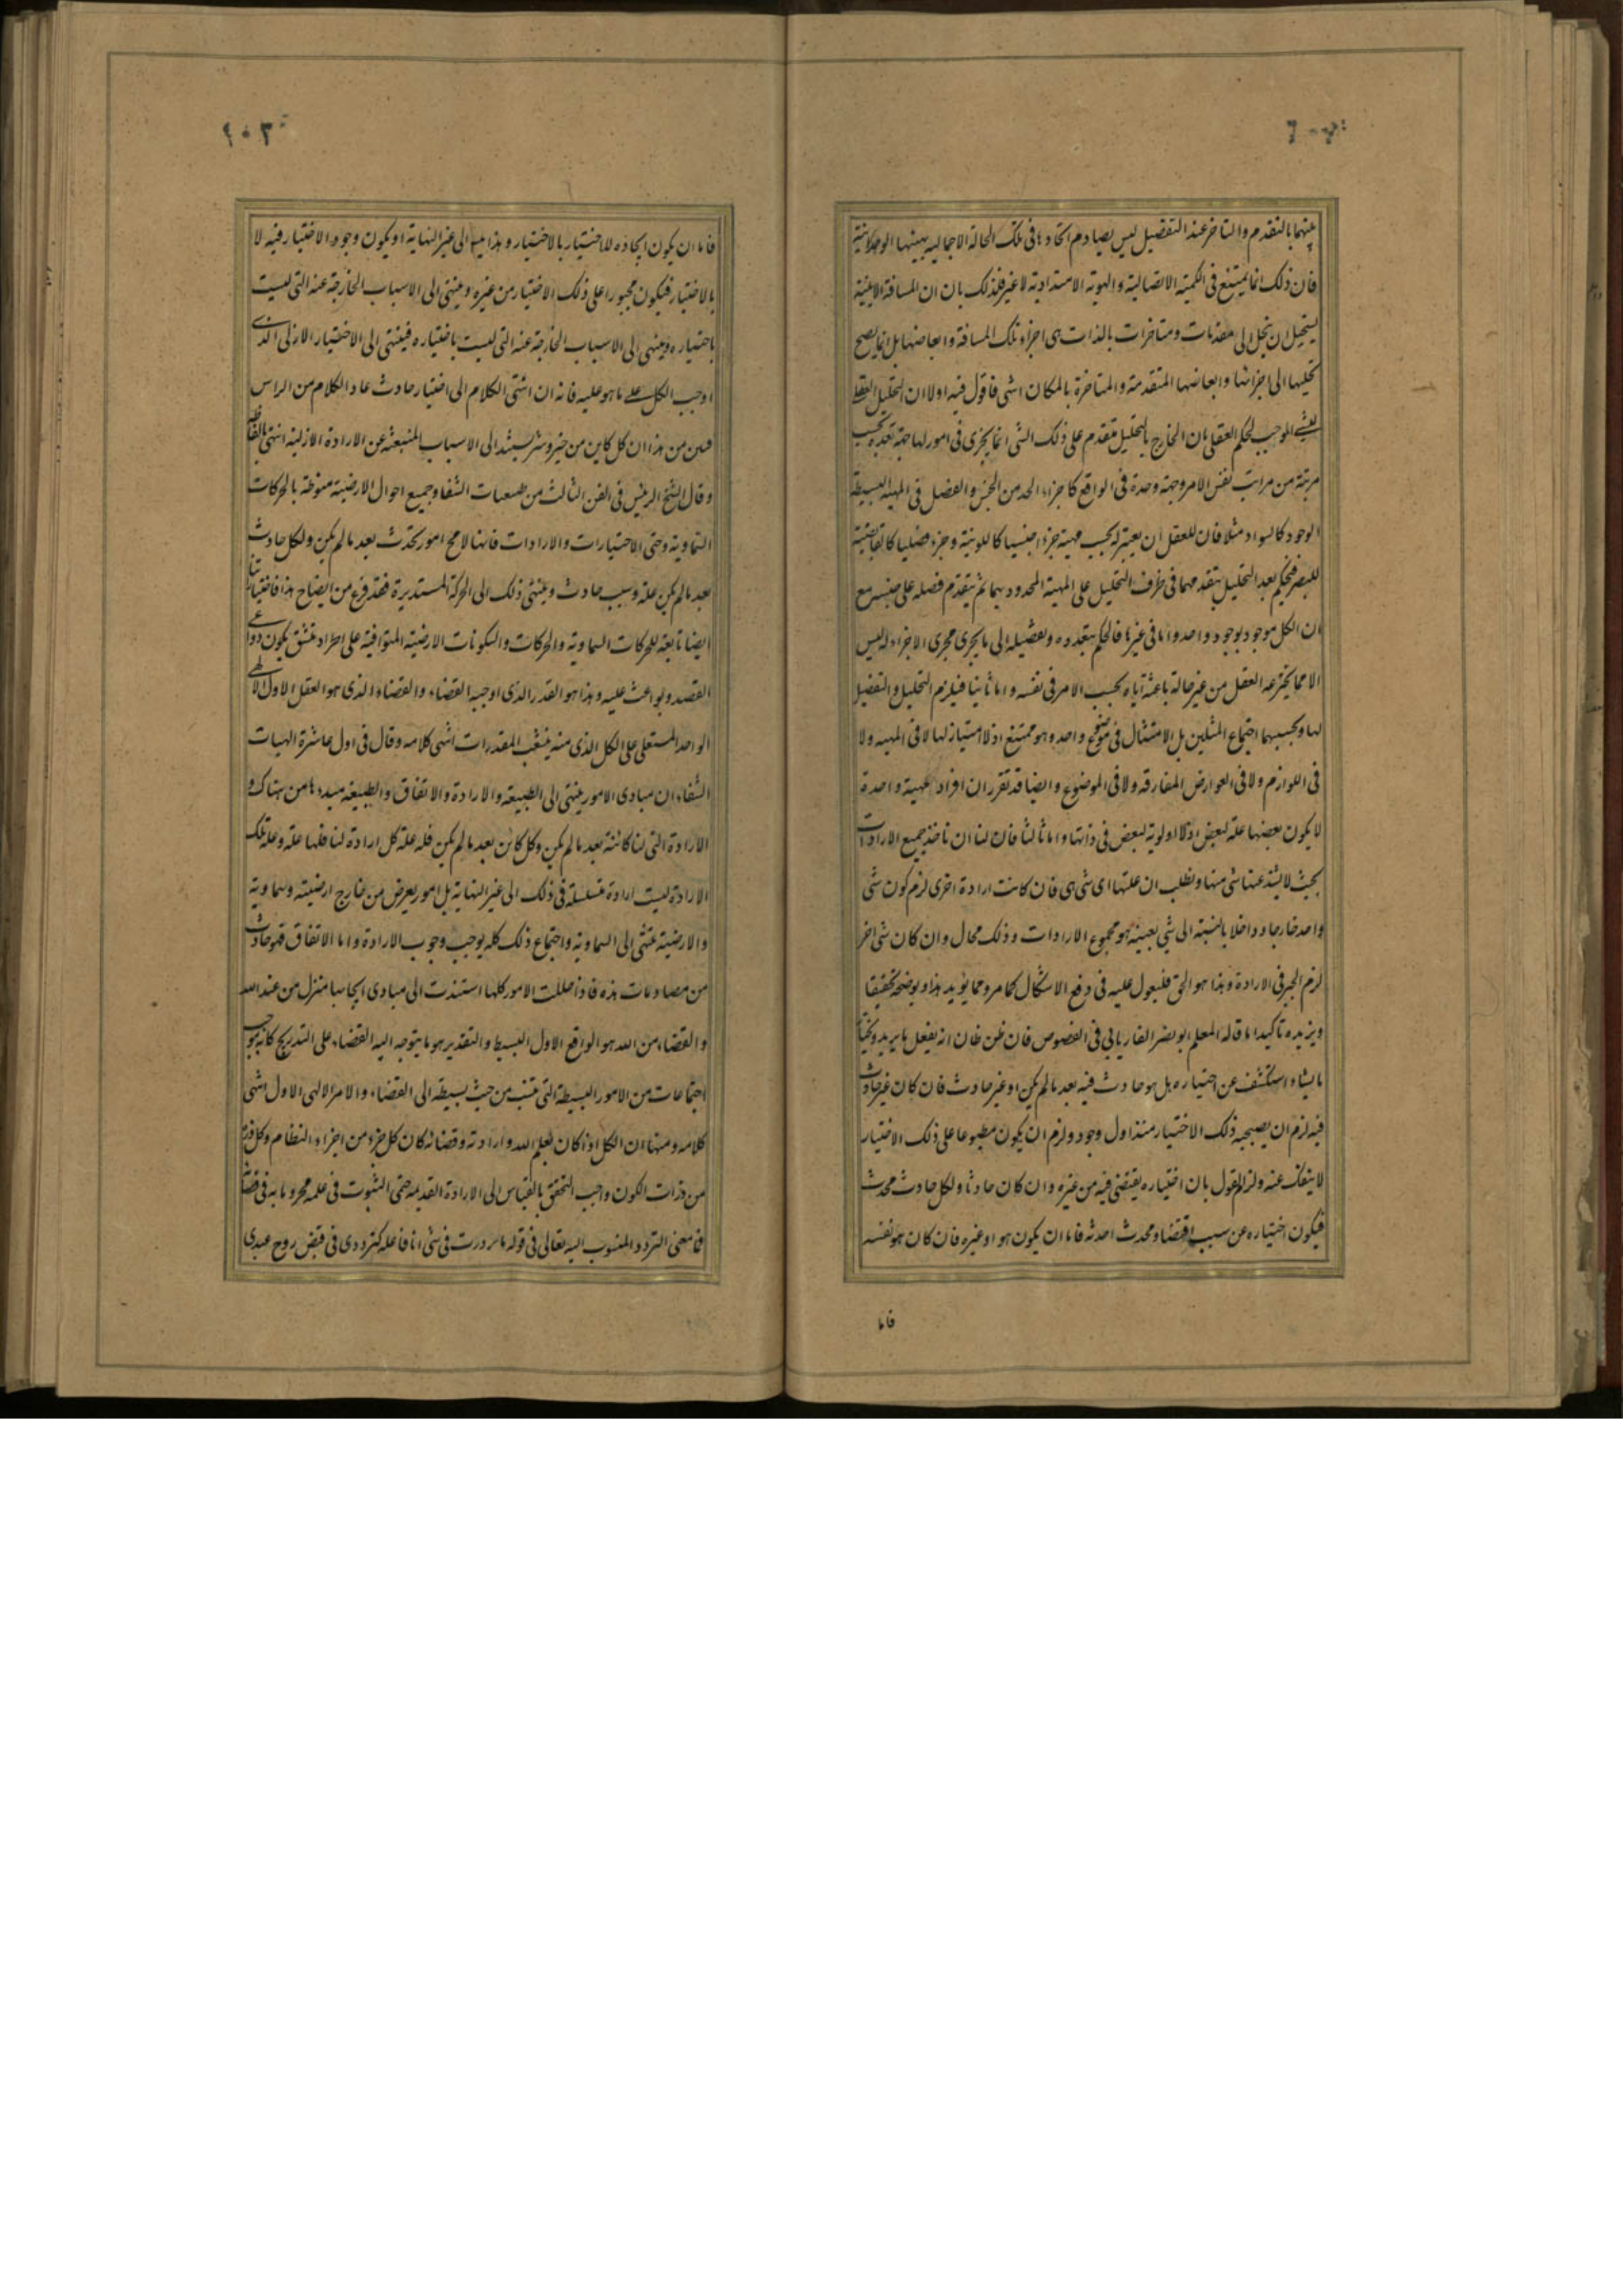 بينهما بالتقدم والتاخر عند التفصيل ليس يصادم اتحادها فى تلك الحالة الاجمالية بهيتها الوحدانية
فان ذلك انما يمتنع فى الكمية الاتصالية والهوية الامتدادية لا غير فذلك بان ان المسافة الاينية
يستحيل ان ينحل الى متقدمات ومتاخرات بالذات هى اجزاء تلك المسافة وابعاضها بل انما يصح
تحليلها الى اجزائها وابعاضها المتقدمة والمتاخرة بالمكان انتهى فاقول فيه اولا ان التحليل العقلى
للشئ الموجب لحكم العقل بان الخارج بالتحليل متقدم على ذلك الشئ انما يجرى فى امور لها جهة تعدد بحسب
مرتبة من مراتب نفس الامر وجهة وحدة فى الواقع كاجزاء الحد من الجنس والفصل فى المهية البسيطة
الوجود كالسواد مثلا فان للعقل ان يعتبر له بحسب مهية جزءا جنسيا كاللونية وجزءا فصليا كالقابضية
للبصر فيحكم بعد التحليل بتقدمهما فى ظرف التحليل على المهية المحدودة بهما ثم بتقدم فصله على جنسه مع
ان الكل موجود بوجود واحد واما فى غيرها فالحكم بتعدده وتفصيله الى ما يجرى مجرى الاجزاء له ليس
الا مما يخترعه العقل من غير حالة باعثة اياه بحسب الامر فى نفسه واما ثانيا فيلزم التحليل والتفصيل
لها وبحسبهما اجتماع المثلين بل الامتثال فى موضوع واحد وهو ممتنع اذ لا امتياز لها لا فى المهية ولا
فى اللوازم ولا فى العوارض المفارقة ولا فى الموضوع وايضا قد تقرر ان افراد مهية واحدة
لا يكون بعضها علة لبعض اذ لا اولوية لبعض فى ذاتها واما ثالثا فان لنا ان ناخذ جميع الارادات
بحيث لا يشذ عنها شئ منها ونطلب ان علتها اى شئ هى فان كانت ارادة اخرى لزم كون شئ
واحد خارجا وداخلا بالنسبة الى شئ بعينه هو مجموع الارادات وذلك محال وان كان شئ اخر
لزم الجبر فى الارادة وهذا هو الحق فليعول عليه فى دفع الاشكال كما مر ومما يؤيد هذا ويوضحه تحقيقا
ويزيده تاكيدا ما قاله المعلم ابو نصر الفاريابى فى الفصوص فان ظن ظان انه يفعل ما يريد ويختار
ما يشاء استكشف عن اختياره هل هو حادث فيه بعد ما لم يكن او غير حادث فان كان غير حادث
فيه لزم ان يصحبه ذلك الاختيار منذ اول وجوده ولزم ان يكون مطبوعا على ذلك الاختيار
لا ينفك عنه ولزم القول بان اختياره يقتضى فيه من غيره وان كان حادثا ولكل حادث محدث
فيكون اختياره عن سبب اقتضاه ومحدث احدثه فاما ان يكون هو او غيره فان كان هو نفسه
فاما
٢٠٢
فاما ان يكون ايجاده للاختيار بالاختيار وهذا يتسلسل الى غير النهاية او يكون وجود الاختيار فيه لا
بالاختيار فيكون مجبورا على ذلك الاختيار من غيره وينتهى الى الاسباب الخارجة عنه التى ليست
باختياره وينتهى الى الاسباب الخارجة عنه التى ليست باختياره فينتهى الى الاختيار الازلى الذى
اوجب الكل على ما هو عليه فانه ان انتهى الكلام الى اختيار حادث عاد الكلام من الراس
فبين من هذا ان كل كاين من خير وشر يستند الى الاسباب المنبعثة عن الارادة الازلية انتهى بالفاظه
وقال الشيخ الرئيس فى الفن الثالث من طبيعيات الشفا وجميع احوال الارضية منوطة بالحركات
السماوية وحتى الاختيارات والارادات فانها لا مح امور تحدث بعد ما لم يكن ولكل حادث
بعد ما لم يكن علة وسبب حادث وينتهى ذلك الى الحركة المستديرة فقد فرغ من ايضاح هذا فاختياراتنا
ايضا تابعة للحركات السماوية والحركات والسكونات الارضية المتوافية على اطراد متسق يكون دواعى
القصد وبواعث عليه وهذا هو القدر الذى اوجبه القضاء والقضاء والذى هو العقل الاول الالهى
الواحد المستعلى على الكل الذى منه ينشعب المقدرات انتهى كلامه وقال فى اول عاشرة الهيات
الشفاء ان مبادى الامور ينتهى الى الطبيعة والارادة والاتفاق والطبيعة مبدءها من هناك و
الارادة التى لنا كائنة بعد ما لم يكن وكل كائن بعد ما لم يكن فله علة كل ارادة لنا فلها علة وعلة تلك
الارادة ليست ارادة متسلسلة فى ذلك الى غير النهاية بل امور يعرض من خارج ارضية وسماوية
والارضية تنتهى الى السماوية واجتماع ذلك كله يوجب وجوب الارادة واما الاتفاق فهو حادث
من مصادمات هذه فاذا حللت الامور كلها استندت الى مبادى ايجابها منزل من عند الله
والقضاء من الله هو الواقع الاول البسيط والتقدير هو ما يتوجه اليه القضاء على التدريج كانه موجب
اجتماعات من الامور البسيطة التى تنسب من حيث بسيطة الى القضاء والامر الالهى الاول انتهى
كلامه ومنها ان الكل اذا كان بعلم الله وارادته وقضائه كان كل جزء من اجزاء النظام وكل ذرة
من ذرات الكون واجب التحقق بالقياس الى الارادة القديمة حتى الثبوت فى علمه مجزوما به فى قضائه
فما معنى التردد المنسوب اليه تعالى فى قوله ما ترددت فى شئ انا فاعله كترددى فى قبض روح عبدى